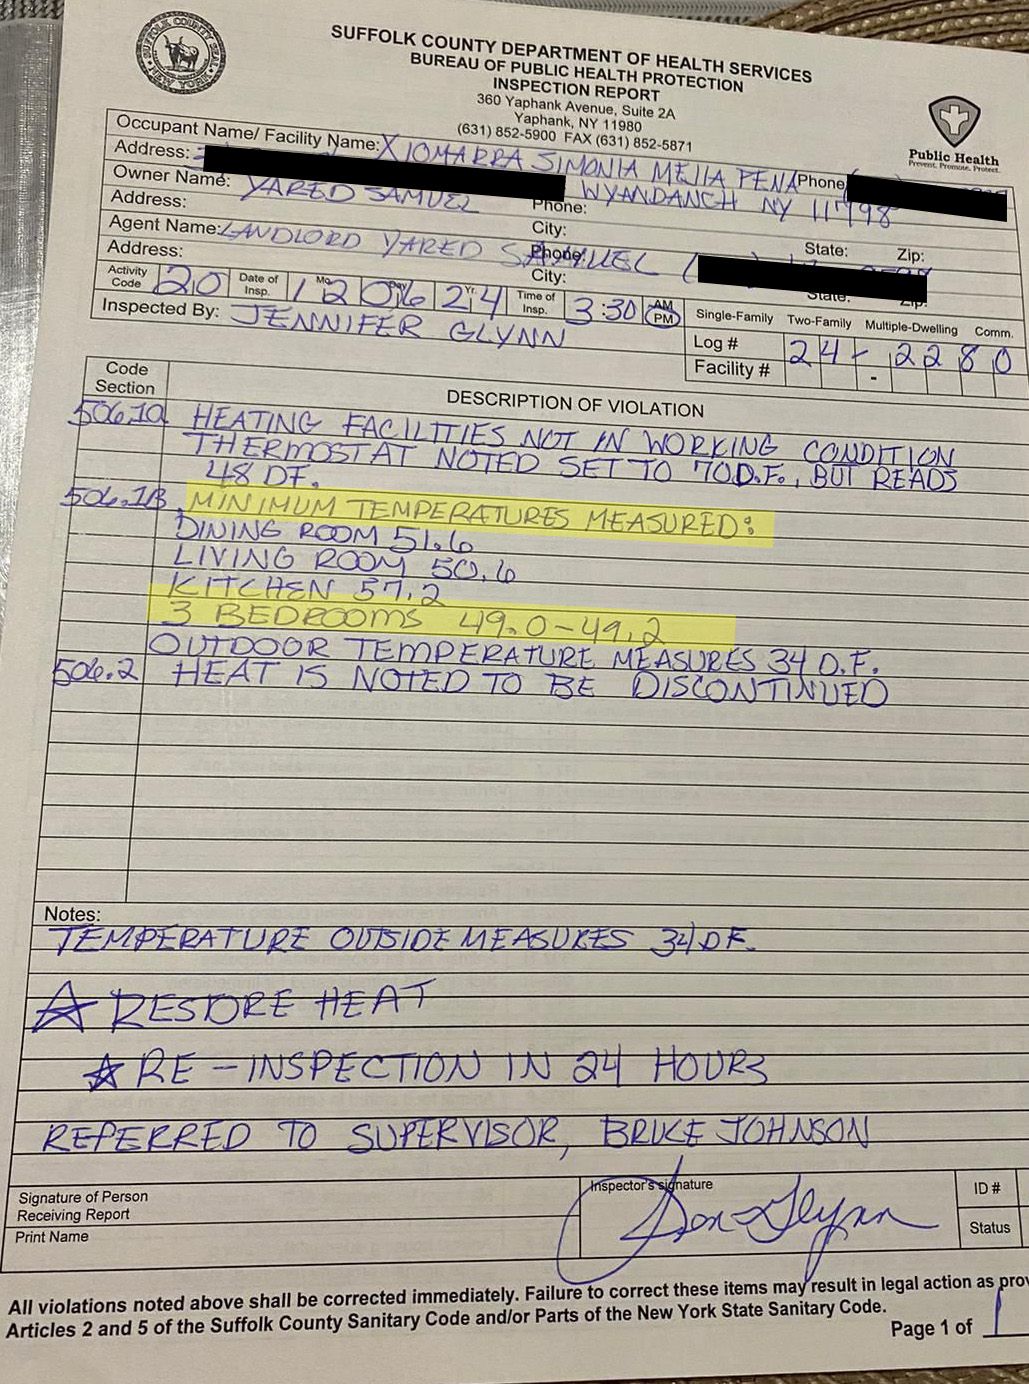 SUFFOLK COUNTY DEPARTMENT OF HEALTH SERVICES
BUREAU OF PUBLIC HEALTH PROTECTION
INSPECTION REPORT
360 Yaphank Avenue, Suite 2A
Yaphank, NY 11980
(631) 852-5900 FAX (631) 852-5871
SUFFOLK COUNTY SEAL
NEW YORK
Public Health
Prevent. Promote. Protect.
Occupant Name/ Facility Name: XIOMARRA SIMONIA MEJIA PENA Phone
Address: WYANDANCH NY 11798
Owner Name: YARED SAMUEL Phone:
Address: City: State: Zip:
Agent Name: LANDLORD YARED SAMUEL Phone: (
Address: City: State: Zip:
Activity Code 20 Date of Insp. Mo. Day Yr. 120624 Time of Insp. 3:30 AM PM
Single-Family Two-Family Multiple-Dwelling Comm.
Inspected By: JENNIFER GLYNN
Log # 24-2280
Facility # -
Code Section DESCRIPTION OF VIOLATION
506.1a HEATING FACILITIES NOT IN WORKING CONDITION
THERMOSTAT NOTED SET TO 70 D.F., BUT READS
48 DF.
506.1B MINIMUM TEMPERATURES MEASURED:
DINING ROOM 51.6
LIVING ROOM 50.6
KITCHEN 57.2
3 BEDROOMS 49.0-49.2
OUTDOOR TEMPERATURE MEASURES 34 D.F.
506.2 HEAT IS NOTED TO BE DISCONTINUED
Notes:
TEMPERATURE OUTSIDE MEASURES 34 DF.
☆ RESTORE HEAT
☆ RE-INSPECTION IN 24 HOURS
REFERRED TO SUPERVISOR, BRUCE JOHNSON
Signature of Person Receiving Report
Print Name
Inspector's signature
Jen Glynn
ID #
Status
All violations noted above shall be corrected immediately. Failure to correct these items may result in legal action as prov
Articles 2 and 5 of the Suffolk County Sanitary Code and/or Parts of the New York State Sanitary Code.
Page 1 of 1